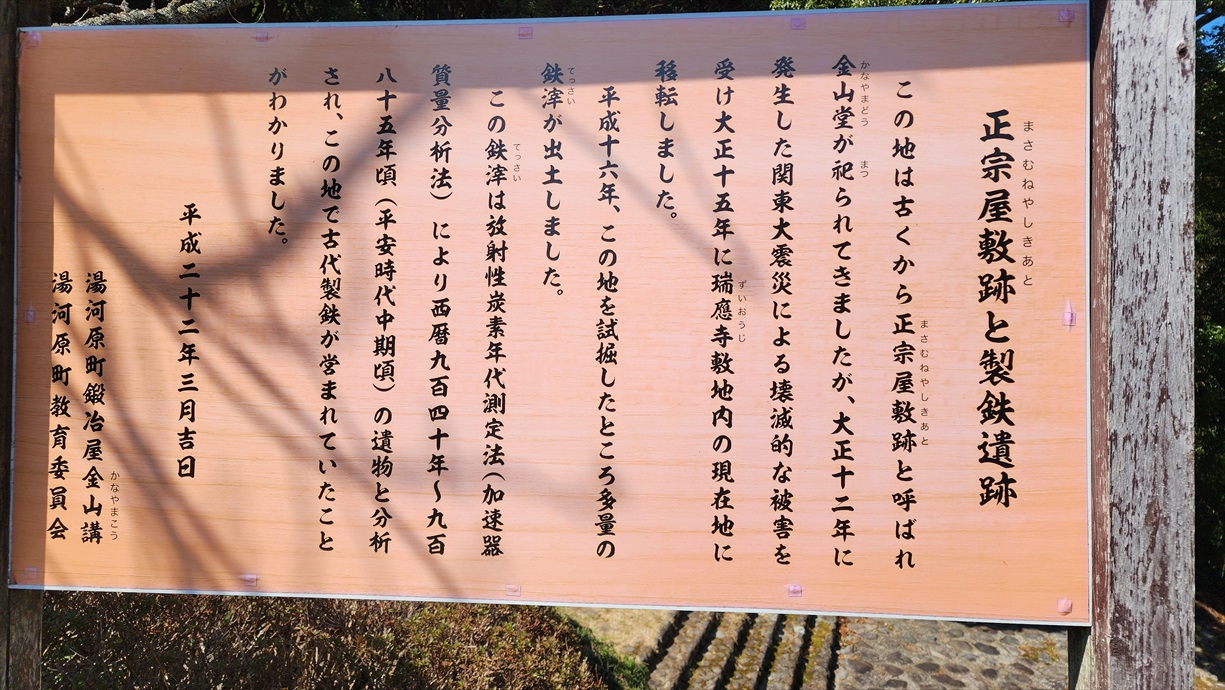 まさむねやしきあと
正宗屋敷跡と製鉄遺跡
この地は古くから正宗屋敷跡と呼ばれ
まさむねやしきあと
金山堂が祀られてきましたが、大正十二年に
かなやまどう
まつ
発生した関東大震災による壊滅的な被害を
受け大正十五年に瑞應寺敷地内の現在地に
ずいおうじ
移転しました。
平成十六年、この地を試掘したところ多量の
鉄滓が出土しました。
てっさい
この鉄滓は放射性炭素年代測定法(加速器
てっさい
質量分析法)により西暦九百四十年~九百
八十五年頃(平安時代中期頃)の遺物と分析
され、この地で古代製鉄が営まれていたこと
がわかりました。
平成二十二年三月吉日
湯河原町鍛冶屋金山講
かなやまこう
湯河原町教育委員会